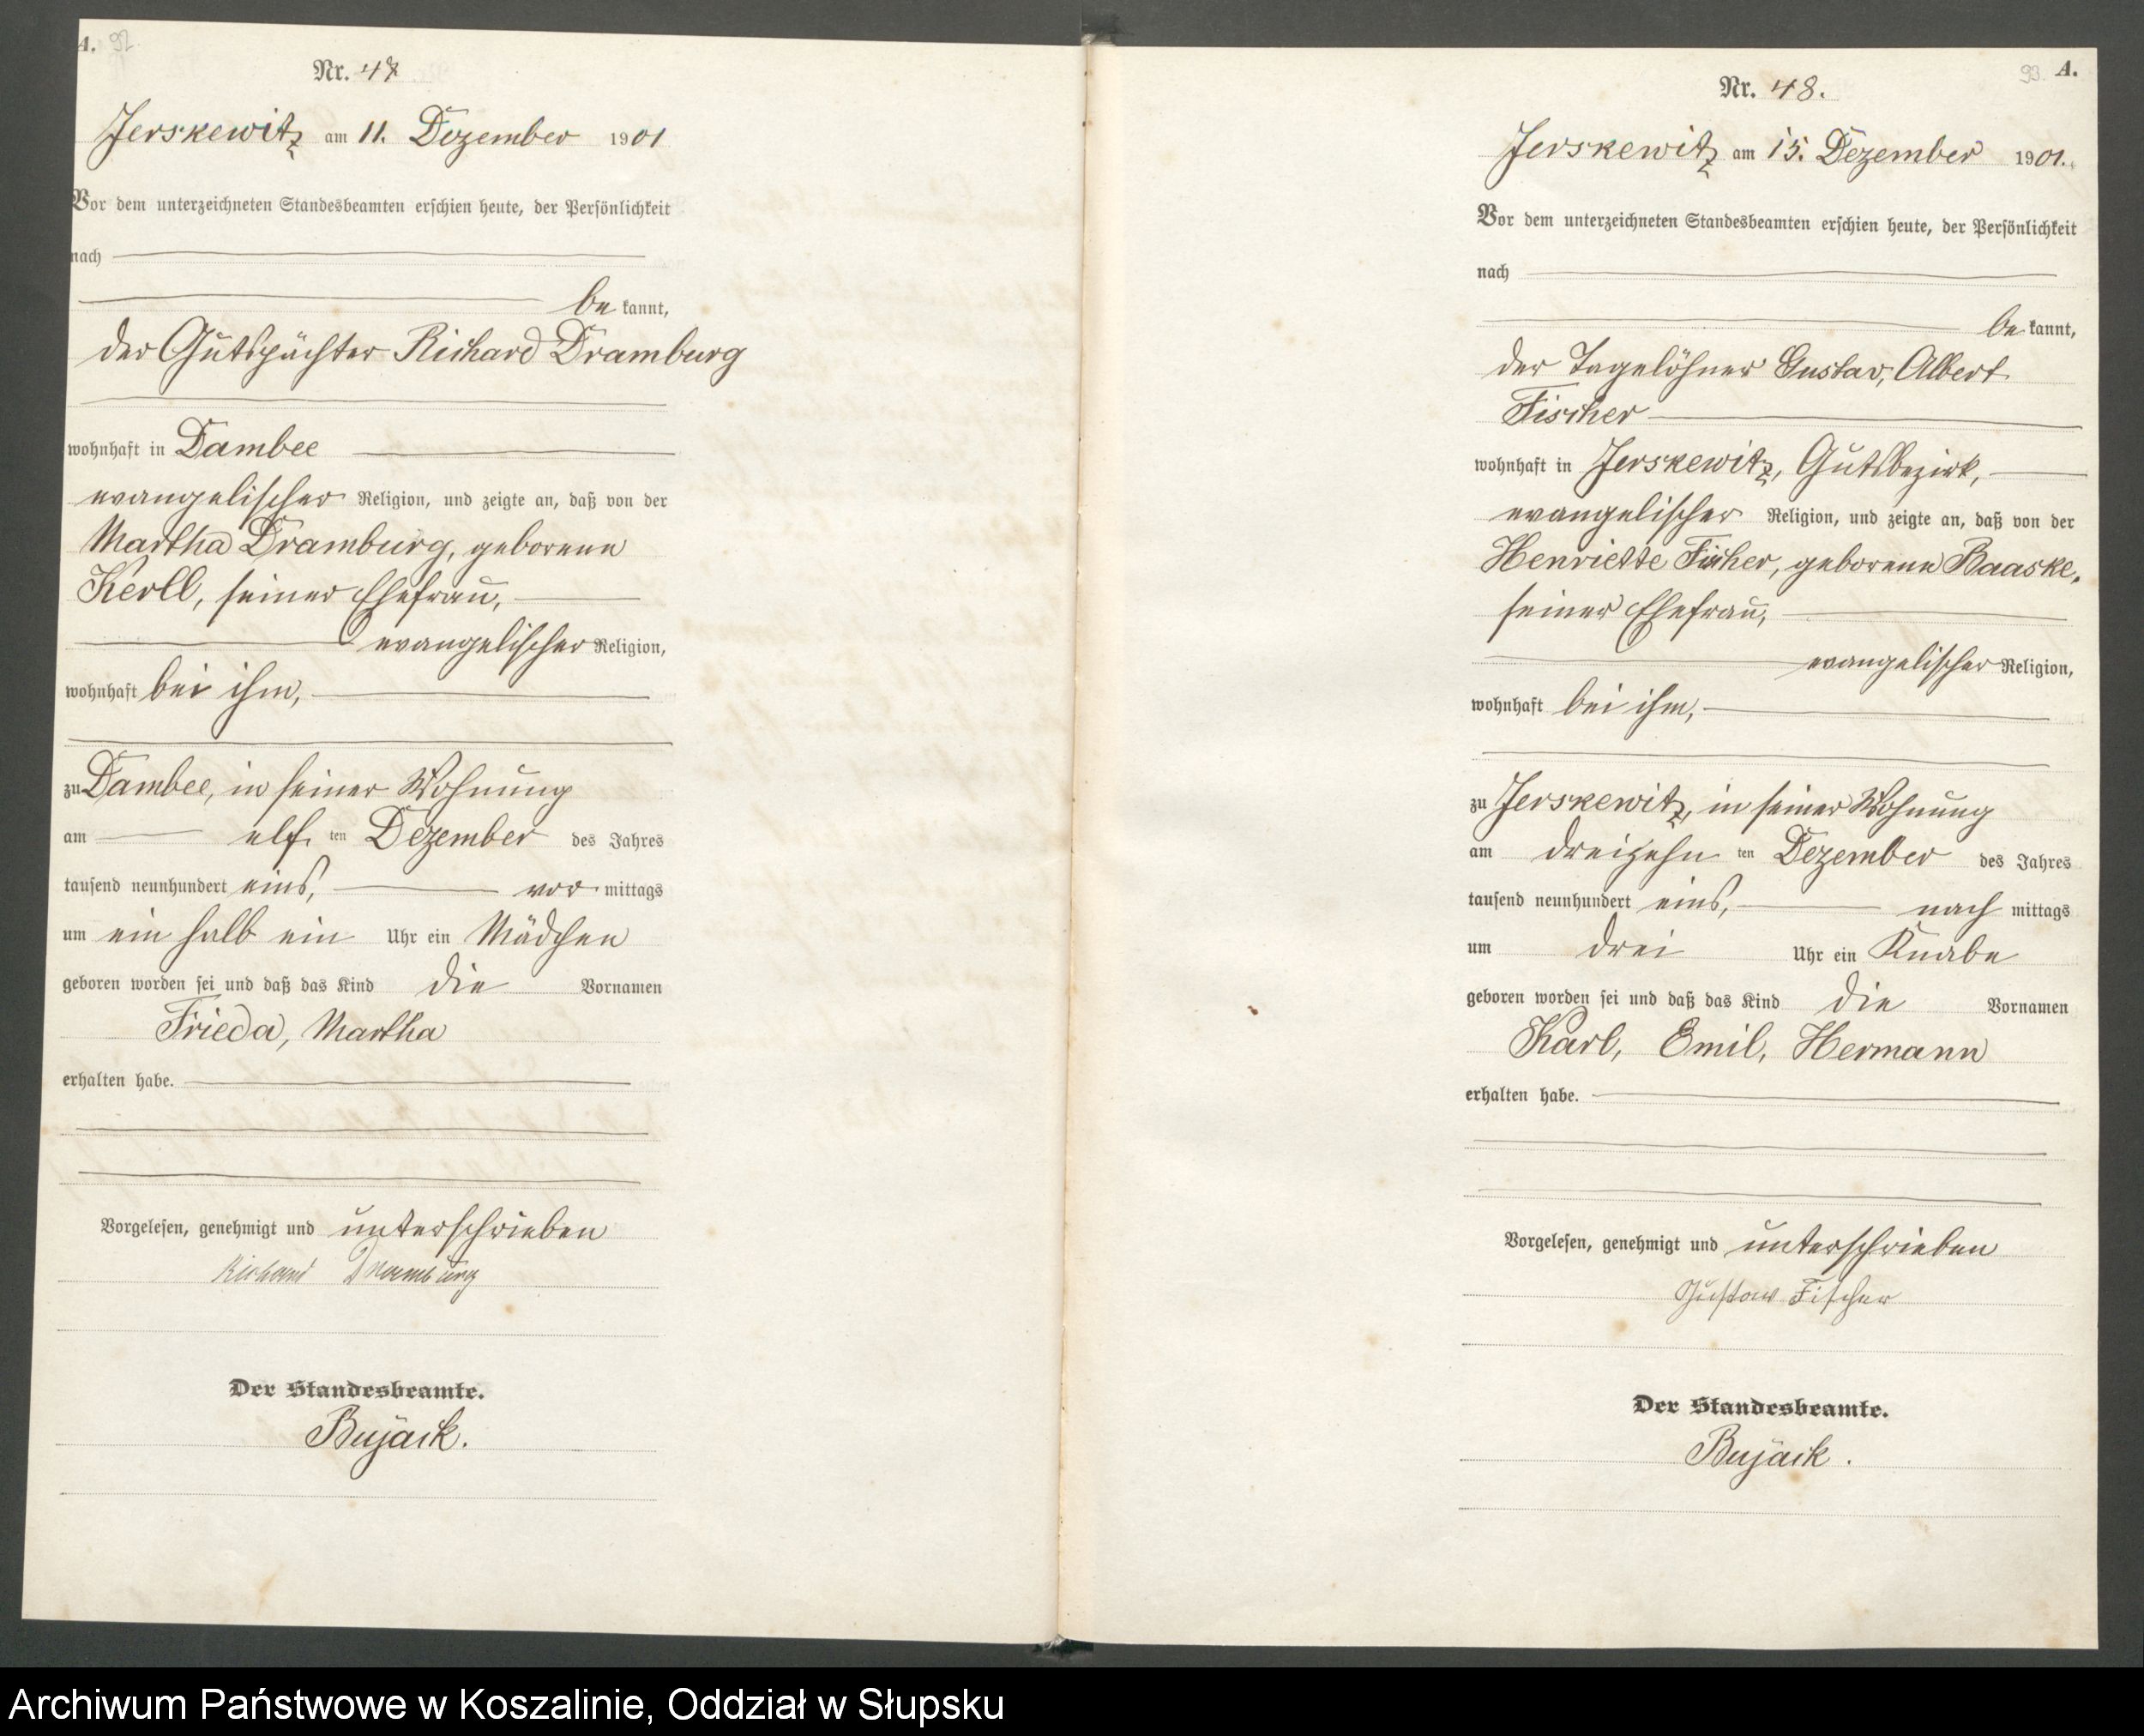 A. 92
Nr. 47
Jerskewitz am 11. Dezember 1901
Vor dem unterzeichneten Standesbeamten erschien heute, der Persönlichkeit
nach
be kannt,
der Gutspächter Richard Dramburg
wohnhaft in Dambee
evangelischer Religion, und zeigte an, daß von der
Martha Dramburg, geborene
Kerll, seiner Ehefrau,
evangelischer Religion,
wohnhaft bei ihm,
zu Dambee, in seiner Wohnung
am elf ten Dezember des Jahres
tausend neunhundert eins, vor mittags
um ein halb ein Uhr ein Mädchen
geboren worden sei und daß das Kind die Vornamen
Frieda, Martha
erhalten habe.
Vorgelesen, genehmigt und unterschrieben
Richard Dramburg
Der Standesbeamte.
Bujack.
93. A.
Nr. 48.
Jerskewitz am 15. Dezember 1901.
Vor dem unterzeichneten Standesbeamten erschien heute, der Persönlichkeit
nach
be kannt,
der Tagelöhner Gustav, Albert
Fischer
wohnhaft in Jerskewitz, Gutsbezirk,
evangelischer Religion, und zeigte an, daß von der
Henriette Fischer, geborene Baaske,
seiner Ehefrau,
evangelischer Religion,
wohnhaft bei ihm,
zu Jerskewitz, in seiner Wohnung
am dreizehn ten Dezember des Jahres
tausend neunhundert eins, nach mittags
um drei Uhr ein Knabe
geboren worden sei und daß das Kind die Vornamen
Karl, Emil, Hermann
erhalten habe.
Vorgelesen, genehmigt und unterschrieben
Gustav Fischer
Der Standesbeamte.
Bujack.
Archiwum Państwowe w Koszalinie, Oddział w Słupsku